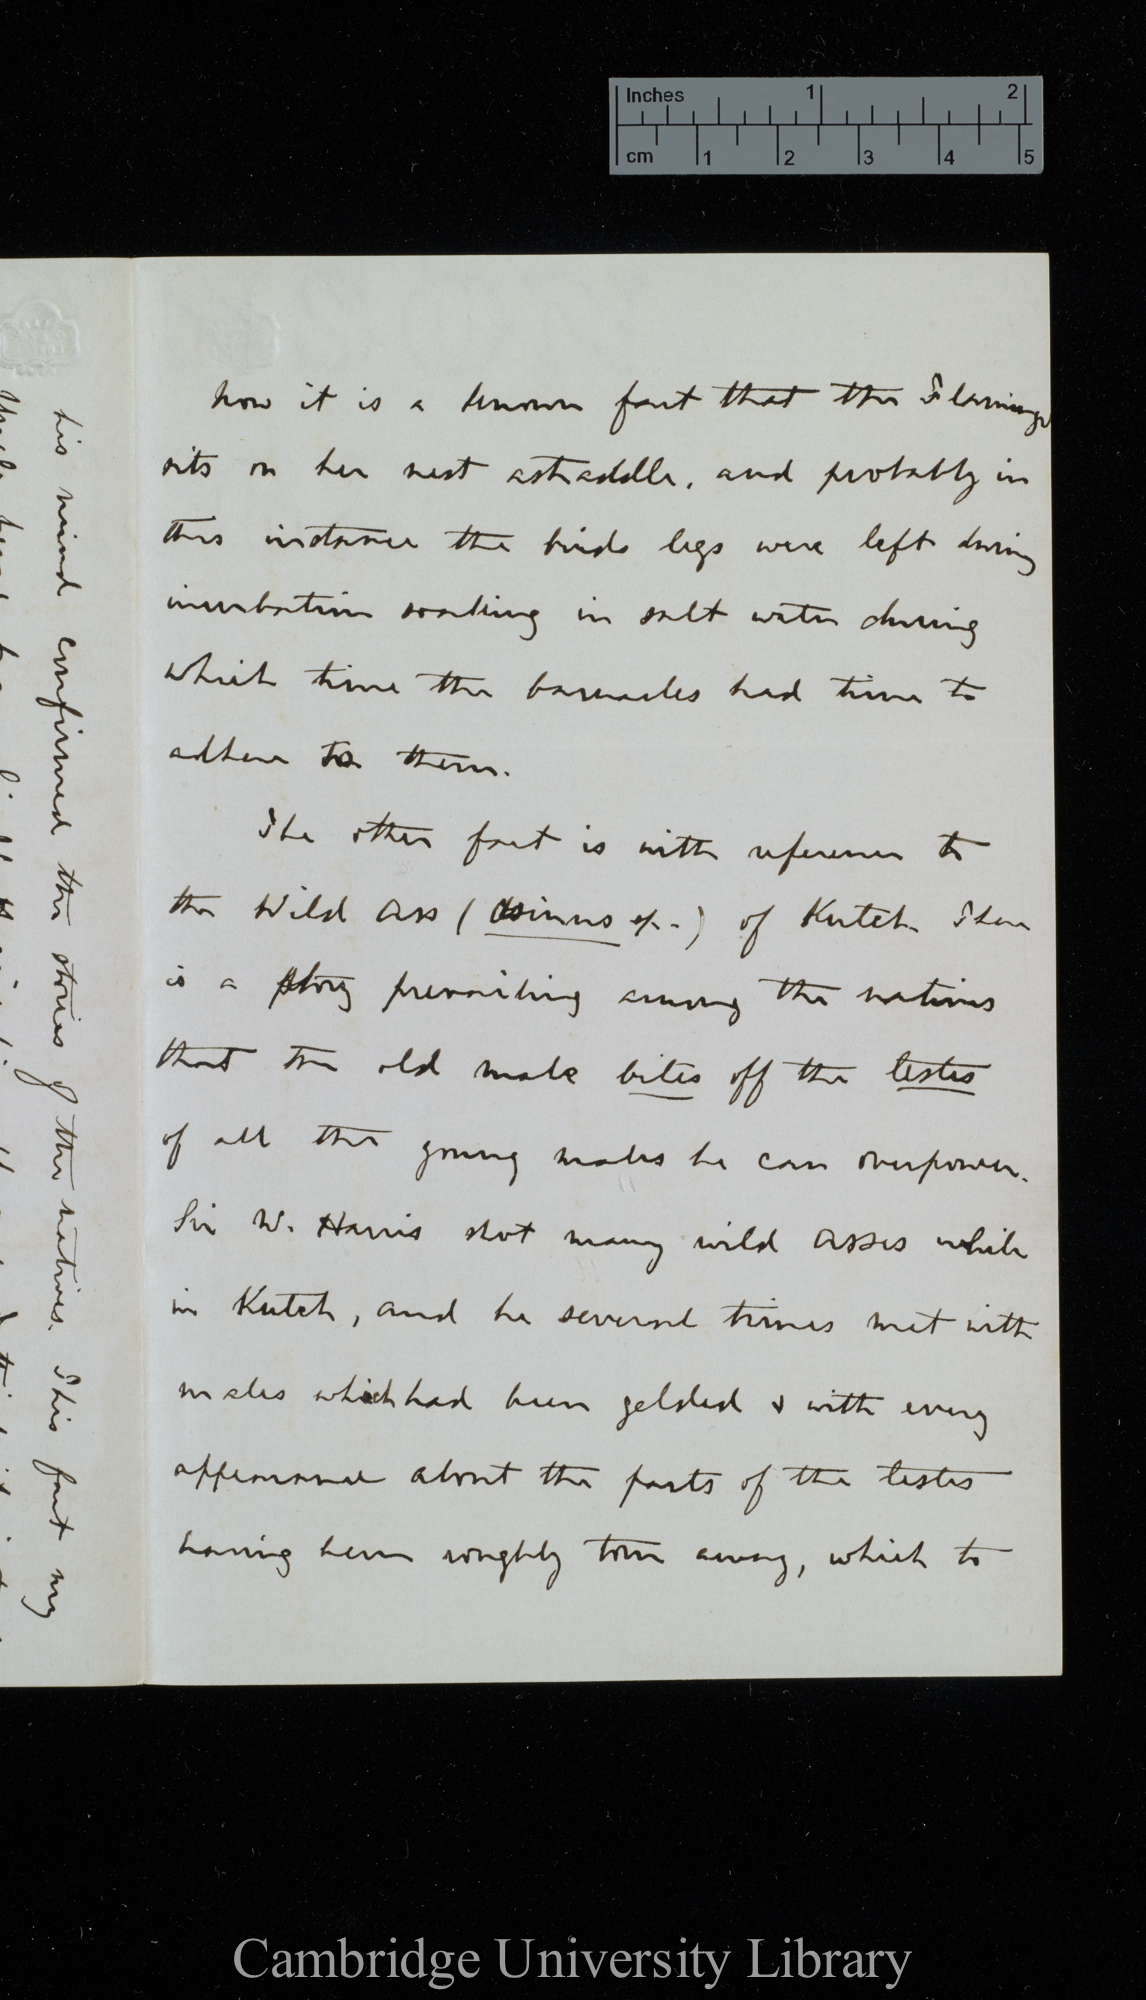 Inches 1 2
cm 1 2 3 4 5
now it is a known fact that the Flamingo
sits on her nest astraddle, and probably in
this instance the birds legs were left during
incubation soaking in salt water during
which time the barnacles had time to
adhere to them.
The other fact is with reference to
the Wild Ass (Asinus sp.) of Kutch. There
is a story prevailing among the natives
that the old male bites off the testes
of all the young males he can overpower.
Sir W. Harris shot many wild asses while
in Kutch, and he several times met with
males which had been gelded & with every
appearance about the parts of the testes
having been roughly torn away, which to
his mind confirmed the stories of the natives. This fact my
Cambridge University Library